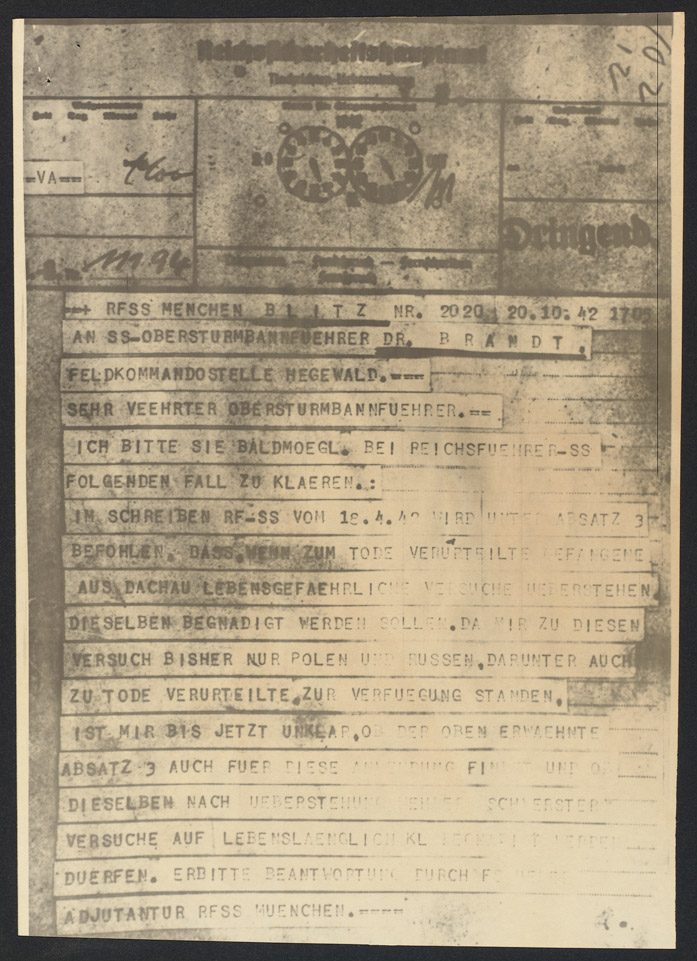 21
201
Reichssicherheitshauptamt
-VA--
Dringend
RFSS MENCHEN B L I T Z NR. 2020 20.10.42 1705
AN SS-OBERSTURMBANNFUEHRER DR. B R A N D T.
FELDKOMMANDOSTELLE HEGEWALD.---
SEHR VEEHRTER OBERSTURMBANNFUEHRER.--
ICH BITTE SIE BALDMOEGL. BEI REICHSFUEHRER-SS
FOLGENDEN FALL ZU KLAEREN.:
IM SCHREIBEN RF-SS VOM 18.4.42 WIRD UNTER ABSATZ 3
BEFOHLEN, DASS, WENN ZUM TODE VERURTEILTE GEFANGENE
AUS DACHAU LEBENSGEFAEHRLICHE VERSUCHE UEBERSTEHEN
DIESELBEN BEGNADIGT WERDEN SOLLEN. DA MIR ZU DIESEN
VERSUCH BISHER NUR POLEN UND RUSSEN, DARUNTER AUCH
ZU TODE VERURTEILTE, ZUR VERFUEGUNG STANDEN,
IST MIR BIS JETZT UNKLAR, OB DER OBEN ERWAEHNTE
ABSATZ 3 AUCH FUER DIESE ANWENDUNG FINDET UND OB
DIESELBEN NACH UEBERSTEHUNG SCHWERSTER
VERSUCHE AUF LEBENSLAENGLICH KL BEGNADIGT WERDEN
DUERFEN. ERBITTE BEANTWORTUNG DURCH FS
ADJUTANTUR RFSS MUENCHEN.----